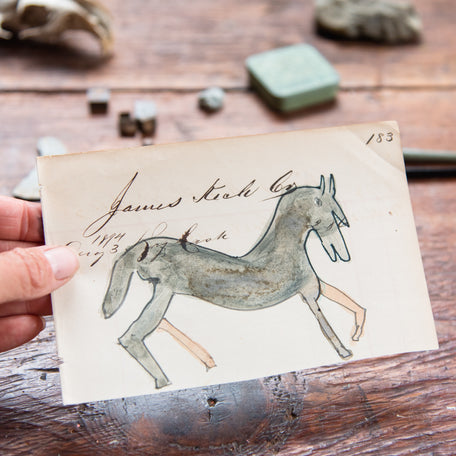 183
James Keah Co
1894
Aug 3